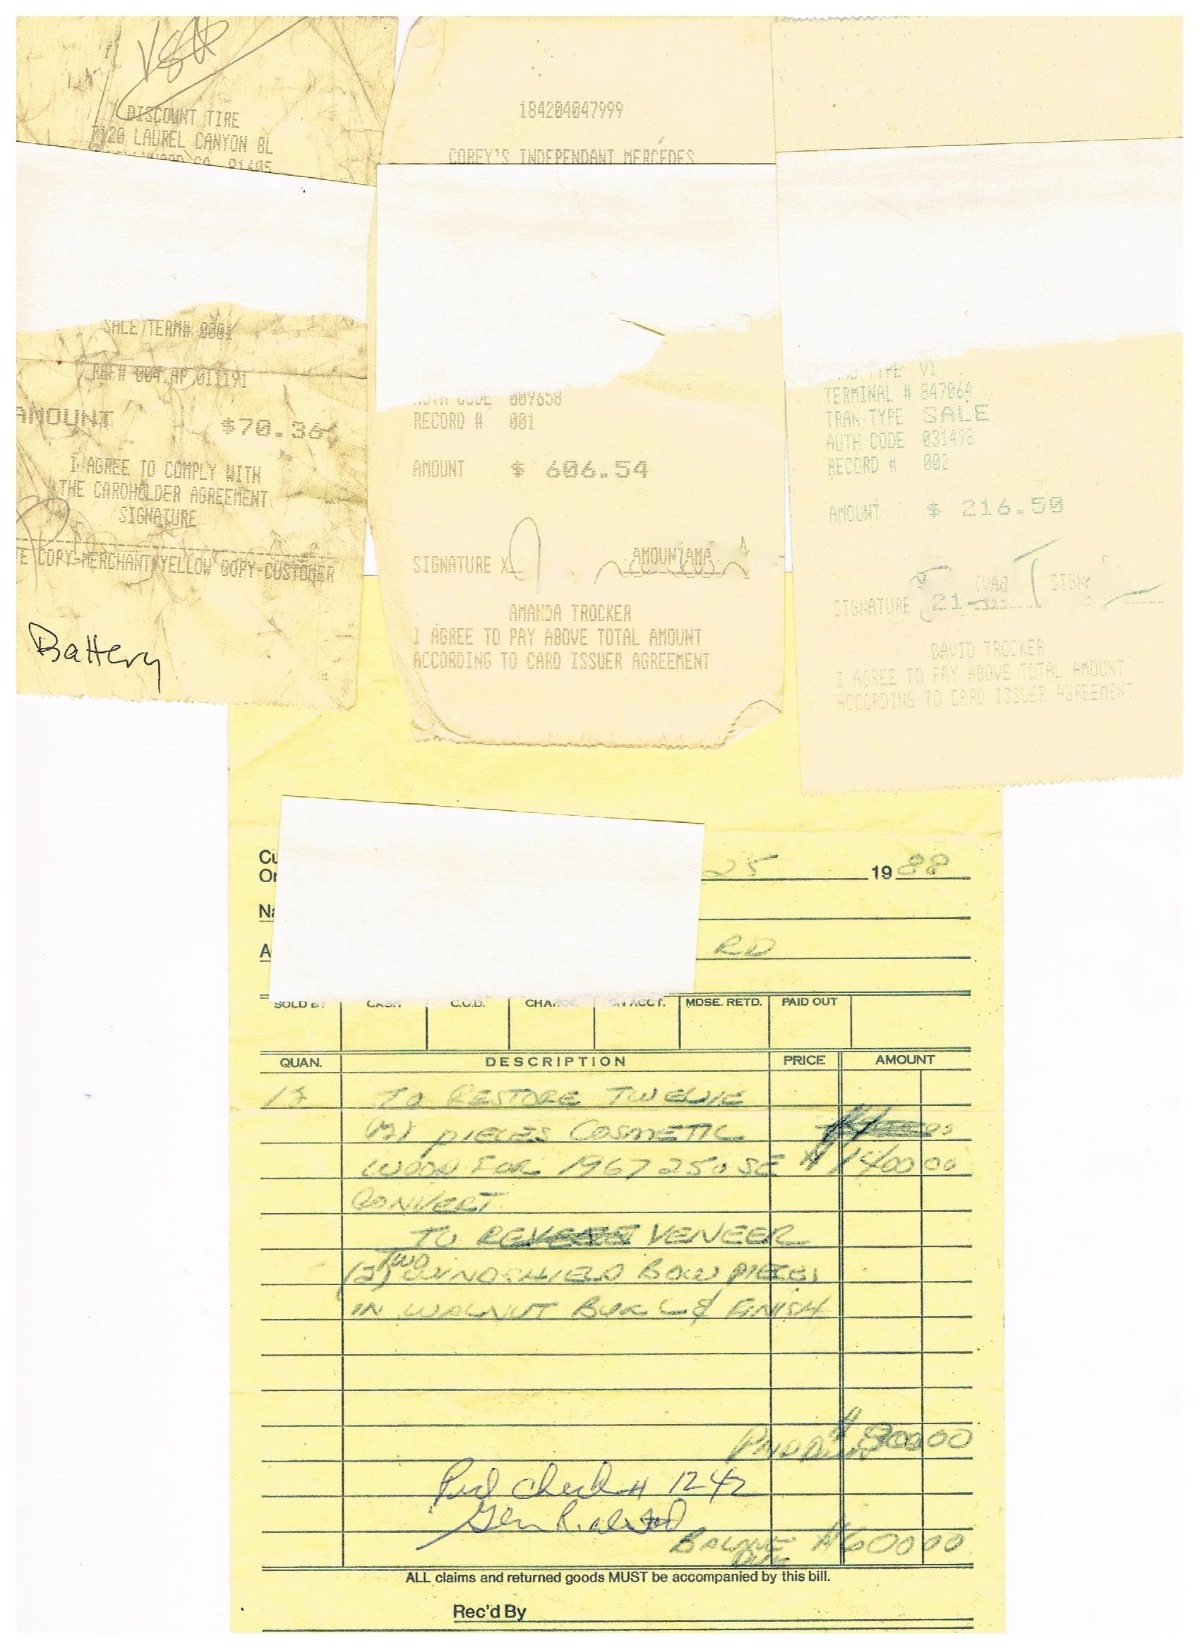 VSA
DISCOUNT TIRE
7120 LAUREL CANYON BL
SALE TERM# 0001
REF# 004 AP 011191
AMOUNT $70.36
I AGREE TO COMPLY WITH
THE CARDHOLDER AGREEMENT
SIGNATURE
TE COPY-MERCHANT YELLOW COPY-CUSTOMER
Battery
184204047999
COREY'S INDEPENDANT MERCEDES
AUTH CODE 009658
RECORD # 001
AMOUNT $ 606.54
SIGNATURE X
AMANDA TROCKER
I AGREE TO PAY ABOVE TOTAL AMOUNT
ACCORDING TO CARD ISSUER AGREEMENT
TYPE V1
TERMINAL # 847064
TRAN TYPE SALE
AUTH CODE 031496
RECORD # 002
AMOUNT $ 216.50
SIGNATURE
DAVID TROCKER
I AGREE TO PAY ABOVE TOTAL AMOUNT
ACCORDING TO CARD ISSUER AGREEMENT
Cu
Or
25 19 88
Na
A RD
SOLD BY CASH C.O.D. CHARGE ON ACCT. MDSE. RETD. PAID OUT
QUAN. DESCRIPTION PRICE AMOUNT
12 TO RESTORE TWELVE
(12) PIECES COSMETIC
WOOD FOR 1967 250 SE $1400 00
CONVERT
TO RE VENEER
(2) TWO WINDSHIELD BOW PIECES
IN WALNUT BURL & FINISH
PAID $800 00
Pd Check # 1242
BALANCE DUE $600 00
ALL claims and returned goods MUST be accompanied by this bill.
Rec'd By